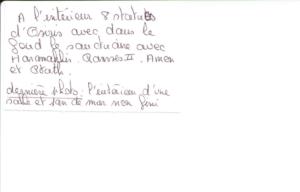 A l'intérieur 8 statues
d'Osiris avec dans le
fond le sanctuaire avec
Haramakhis. Ramsès II. Amon
et Ptah.
dernière photo: l'intérieur d'une
salle et pan de mur non fini